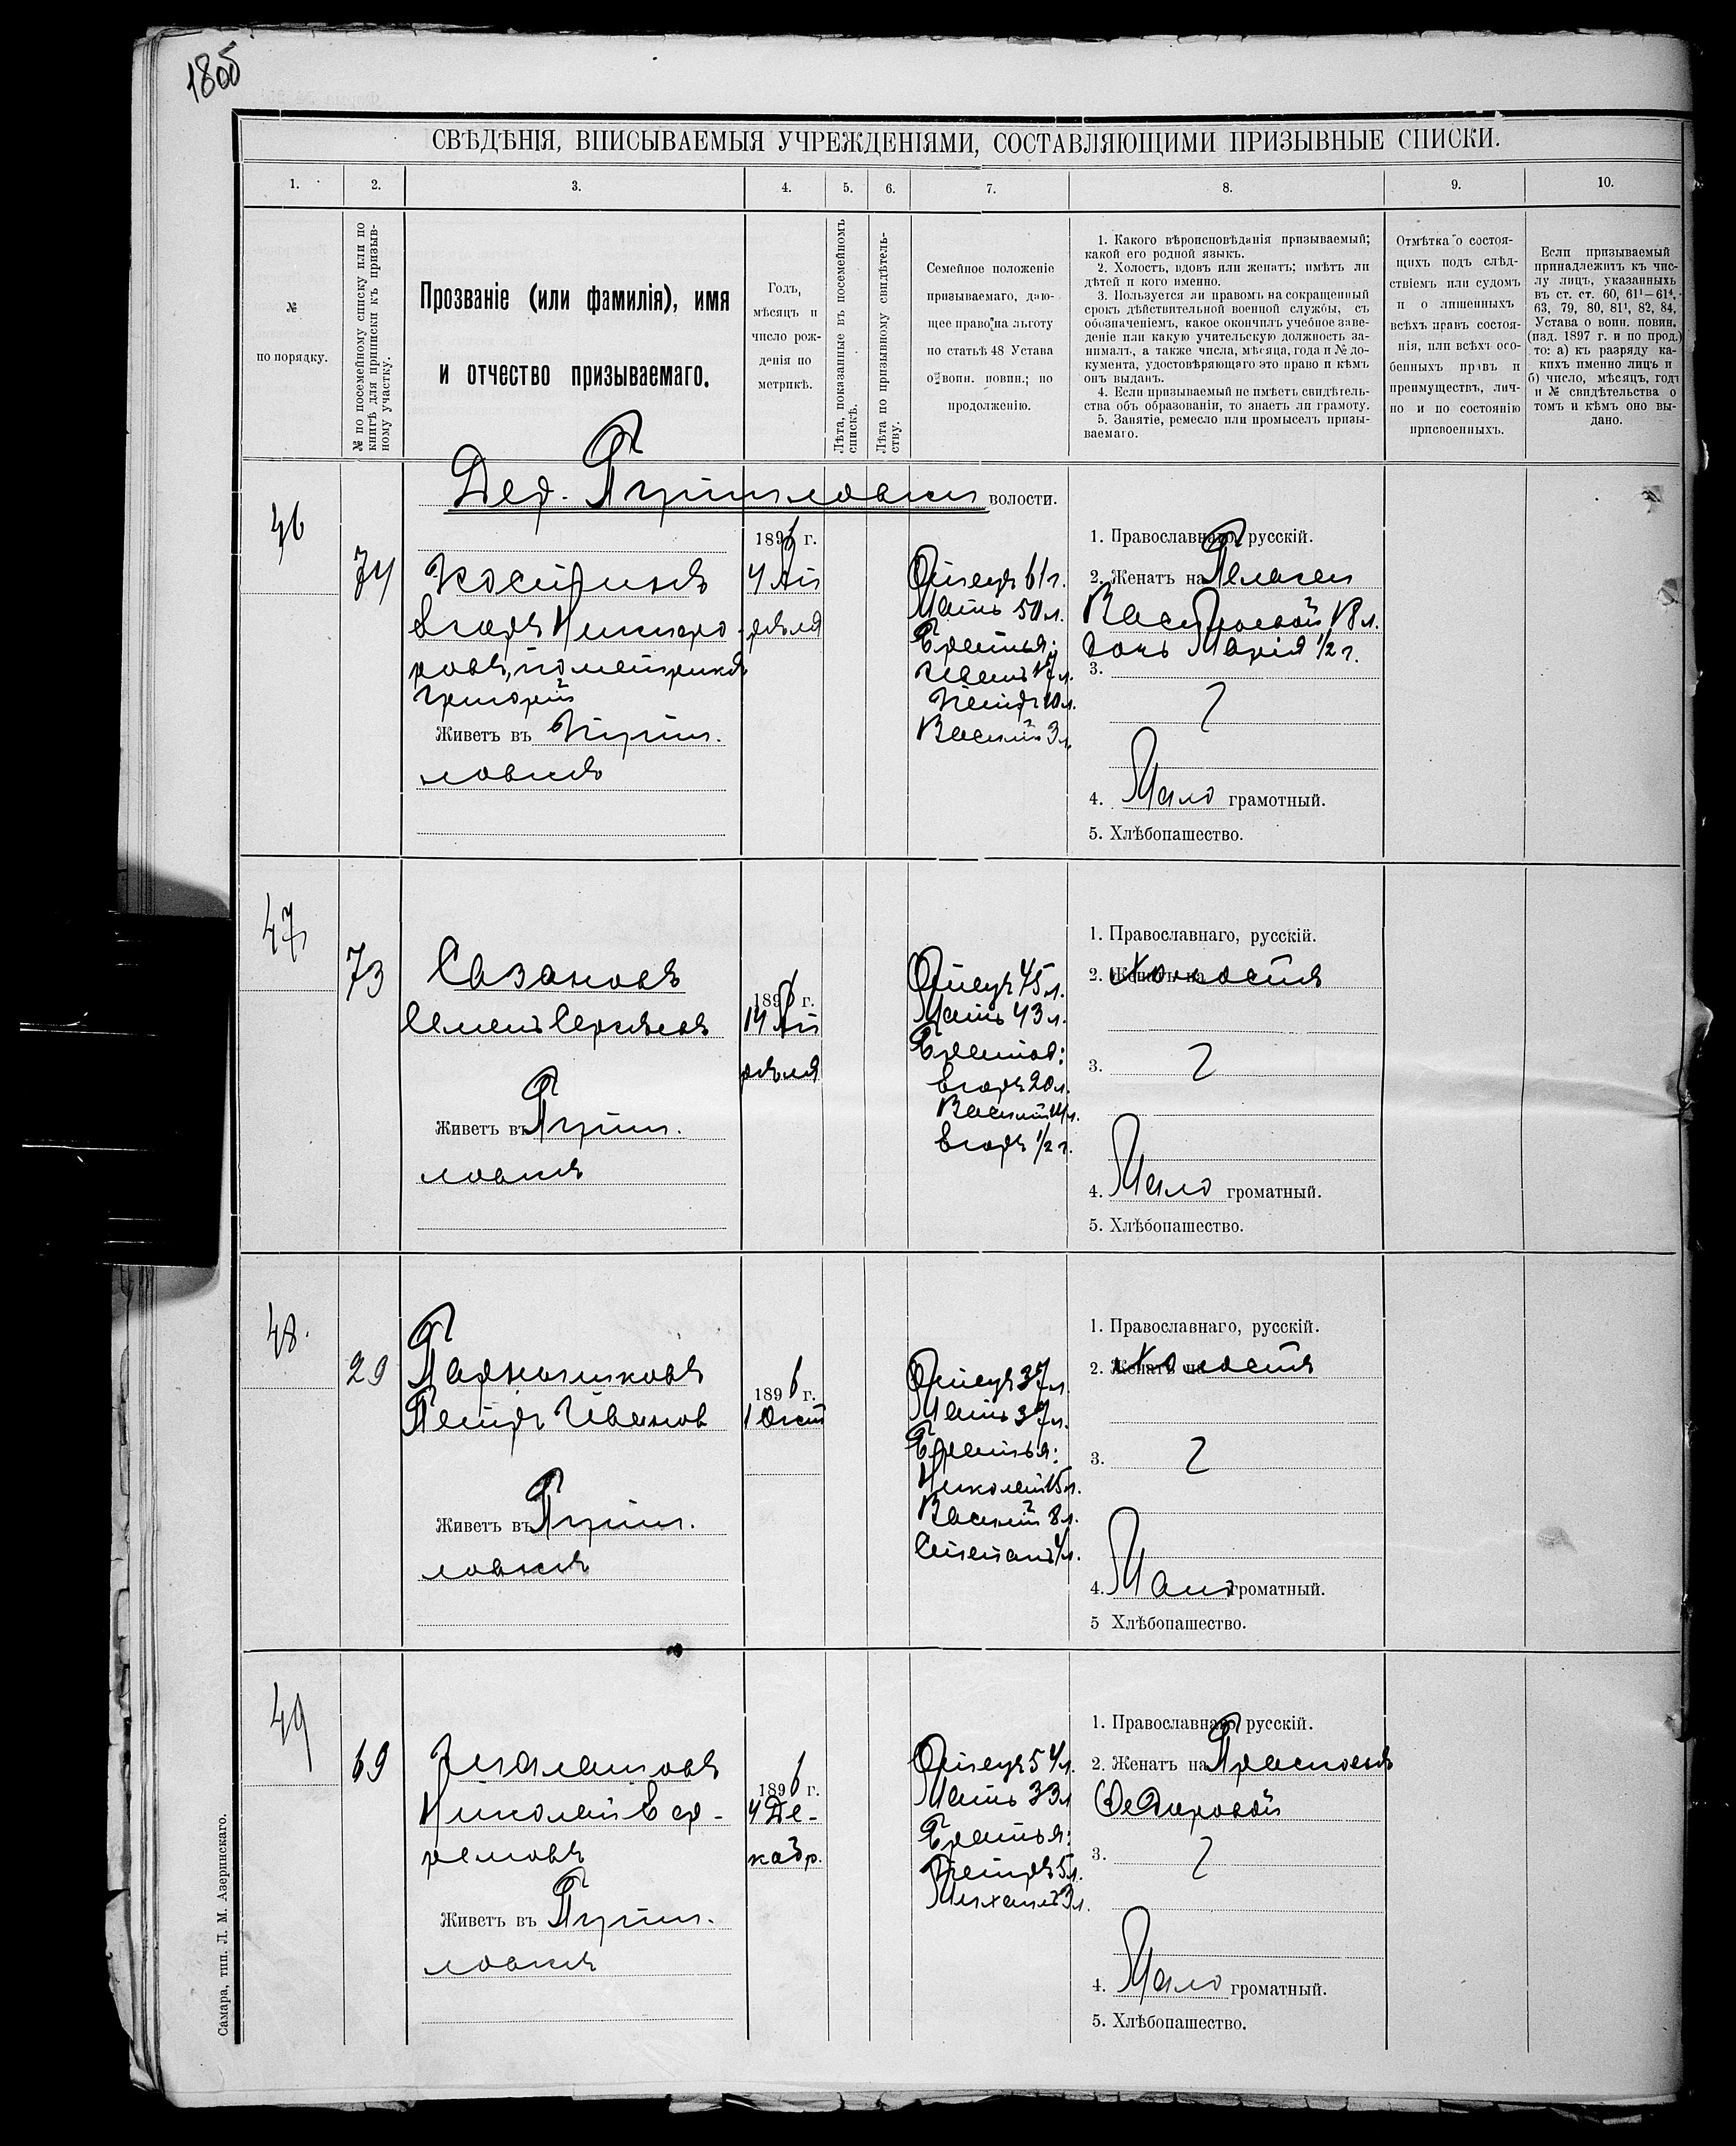 180б
СВѢДѢНІЯ, ВПИСЫВАЕМЫЯ УЧРЕЖДЕНІЯМИ, СОСТАВЛЯЮЩИМИ ПРИЗЫВНЫЕ СПИСКИ.
1. 2. 3. 4. 5. 6. 7. 8. 9. 10.
№
по порядку.
№ по посемейному списку или по
книгѣ для приписки къ призыв-
ному участку.
Прозваніе (или фамилія), имя
и отчество призываемаго.
Годъ,
мѣсяцъ и
число рож-
денія по
метрикѣ.
Лѣта, показанные въ посемейномъ
спискѣ.
Лѣта по призывному свидѣтель-
ству.
Семейное положеніе
призываемаго, даю-
щее право на льготу
по статьѣ 48 Устава
о воин. повин.; по
продолженію.
1. Какого вѣроисповѣданія призываемый;
какой его родной языкъ.
2. Холостъ, вдовъ или женатъ; имѣтъ ли
дѣтей и кого именно.
3. Пользуется ли правомъ на сокращенный
срокъ дѣйствительной военной службы, съ
обозначеніемъ, какое окончилъ учебное заве-
деніе или какую учительскую должность за-
нималъ, а также числа, мѣсяца, года и № до-
кумента, удостовѣряющаго это право и кѣмъ
онъ выданъ.
4. Если призываемый не имѣетъ свидѣтель-
ства объ образованіи, то знаетъ ли грамоту.
5. Занятіе, ремесло или промыселъ призы-
ваемаго.
Отмѣтка о состоя-
щихъ подъ слѣд-
ствіемъ или судомъ
и о лишенныхъ
всѣхъ правъ состоя-
нія, или всѣхъ осо-
бенныхъ правъ и
преимуществъ, лич-
но и по состоянію
присвоенныхъ.
Если призываемый
принадлежитъ къ чис-
лу лицъ, указанныхъ
въ ст. ст. 60, 61¹—61⁴,
63, 79, 80, 81¹, 82, 84,
Устава о воин. повин.
(изд. 1897 г. и по прод.)
то: а) къ разряду ка-
кихъ именно лицъ и
б) число, мѣсяцъ, годъ
и № свидѣтельства о
томъ и кѣмъ оно вы-
дано.
Дер. Путиловки волости.
46
74
Костинъ
Егоръ Никифо-
ровъ, по метрикѣ
Григорій
Живетъ въ Пути-
ловкѣ
1896 г.
4 Ап-
рѣля
Отецъ 61 г.
Мать 50 л.
Братья:
Иванъ 17 л.
Петръ 10 л.
Василій 3 л.
1. Православнаго, русскій.
2. Женатъ на Пелагеи
18 л.
дочь Марія 1/2 г.
3.
4. Мало грамотный.
5. Хлѣбопашество.
47
73
Сазановъ
Семенъ Сергѣевъ
Живетъ въ Пути-
ловкѣ
1896 г.
14 Ап-
рѣля
Отецъ 45 л.
Мать 43 л.
Братья:
Егоръ 20 л.
Василій 14 л.
Егоръ 1/2 г.
1. Православнаго, русскій.
2. Женатъ на Холостъ
3.
4. Мало громатный.
5. Хлѣбопашество.
48
29
Петръ Иванов
Живетъ въ Пути-
ловкѣ
1896 г.
1 Окт
Отецъ 37 л.
Мать 37 л.
Братья:
Николай 15 л.
Василій 8 л.
Степанъ 4 л.
1. Православнаго, русскій.
2. Женатъ на Холостъ
3.
4. Мало громатный.
5 Хлѣбопашество.
49
69
Николай Еф-
ремовъ
Живетъ въ Пути-
ловкѣ
1896 г.
4 Де-
кабр.
Отецъ 54 л.
Мать 33 л
Братья:
Петръ 5 л.
Михаилъ 3 л.
1. Православнаго, русскій.
2. Женатъ на
Федоровой
3.
4. Мало громатный.
5. Хлѣбопашество.
Самара, тип. Л. М. Азеринскаго.